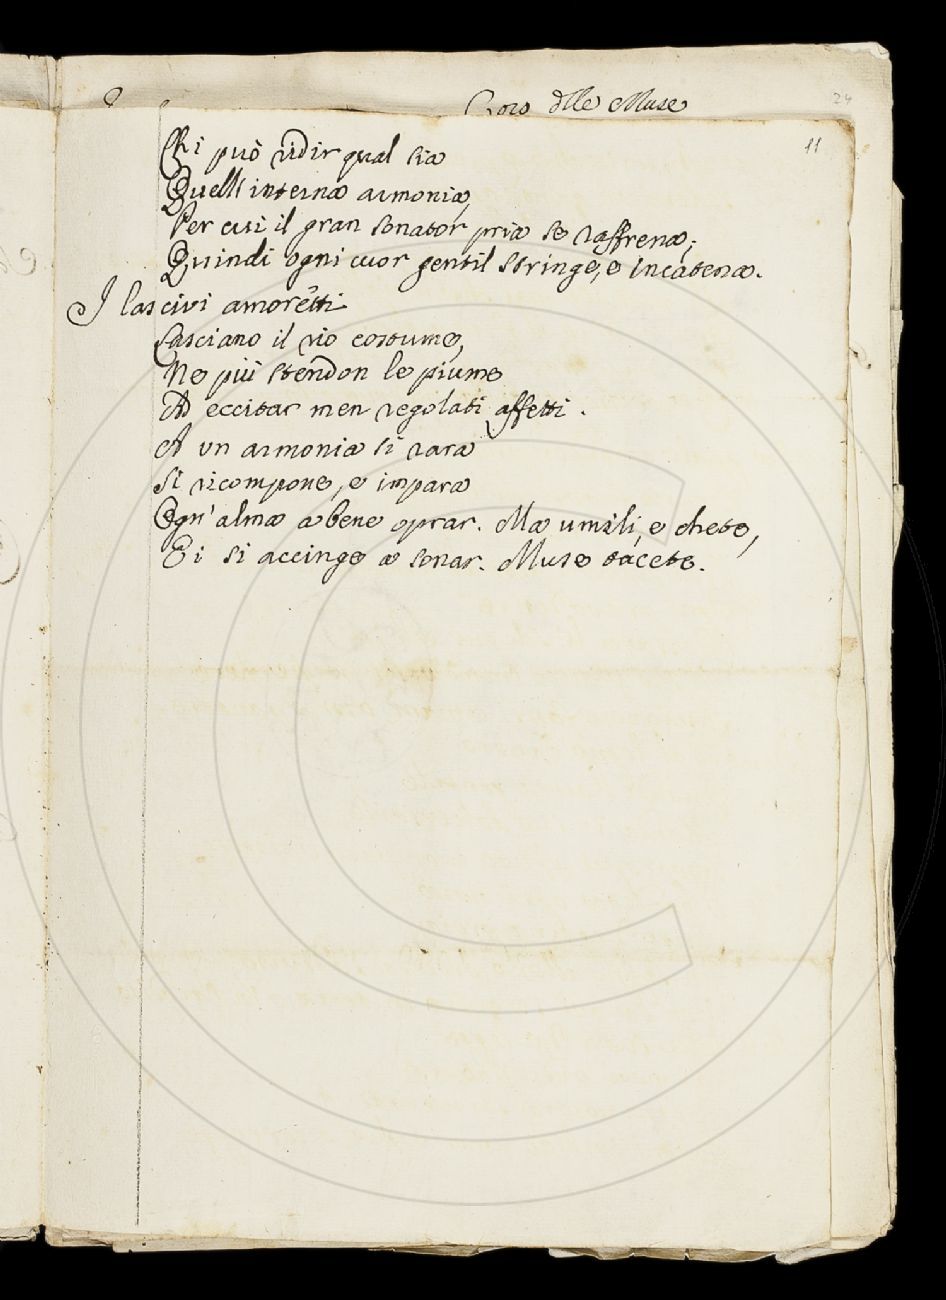 Coro dlle Muse
24
11
Chi può ridir qual sia
Quell'interna armonia,
Per cui il gran sonator pria se raffrena;
Quindi ogni cuor gentil stringe, e incatena.
I lascivi amoretti
Lasciano il rio costume,
Ne più stendon le piume
Ad eccitar men regolati affetti.
A un armonia si rara
Si ricompone, e impara
Ogn'alma a bene oprar. Ma umili, e chete,
Ei si accinge a sonar. Muse tacete.